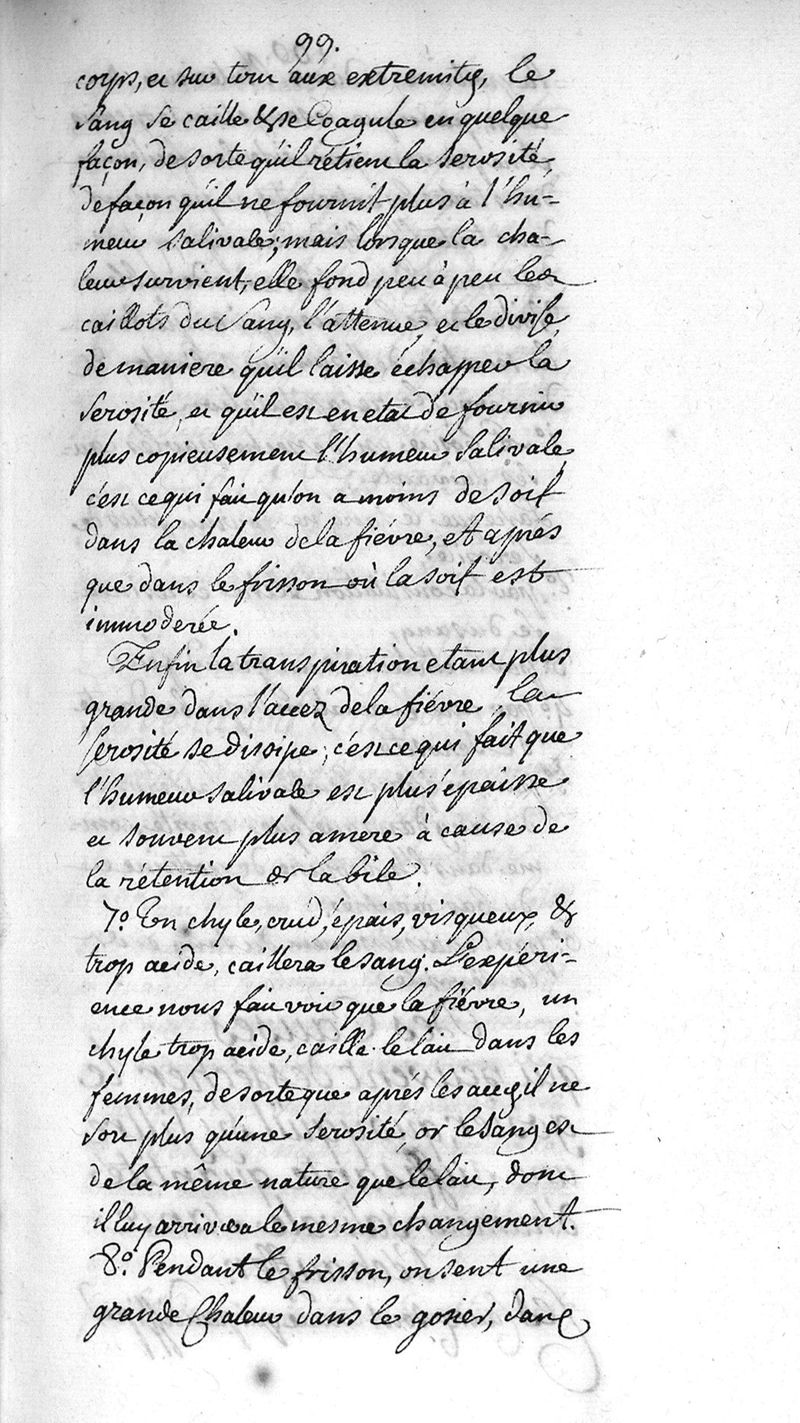 99.
corps, et sur tout aux extremités, le
sang se caille & se Coagule en quelque
façon, de sorte qu'il retient la serosité,
de façon qu'il ne fournit plus à l'hu-
meur salivale; mais lorsque la cha-
leur survient, elle fond peu à peu les
caillots du Sang, l'attenue, et le divise,
de maniere qu'il laisse échapper la
serosité, et qu'il est en etat de fournir
plus copieusement l'humeur salivale,
c'est ce qui fait qu'on a moins de soif
dans la chaleur de la fiévre, et aprés
que dans le frisson où la soif est
immoderée.
Enfin la transpiration etant plus
grande dans l'accez de la fiévre, la
serosité se dissipe; c'est ce qui fait que
l'humeur salivale est plus épaisse
et souvent plus amere à cause de
la rétention de la bile.
7.º Un chyle, crud, épais, visqueux, &
trop acide, caillera le sang. L'expéri-
ence nous fait voir que la fiévre, un
chyle trop acide, caille le lait dans les
femmes, de sorte que aprés les accez il ne
sort plus qu'une serosité, or le sang est
de la même nature que le lait, donc
il luy arrivera le mesme changement.
8.º Pendant le frisson, on sent une
grande Chaleur dans le gosier, dans